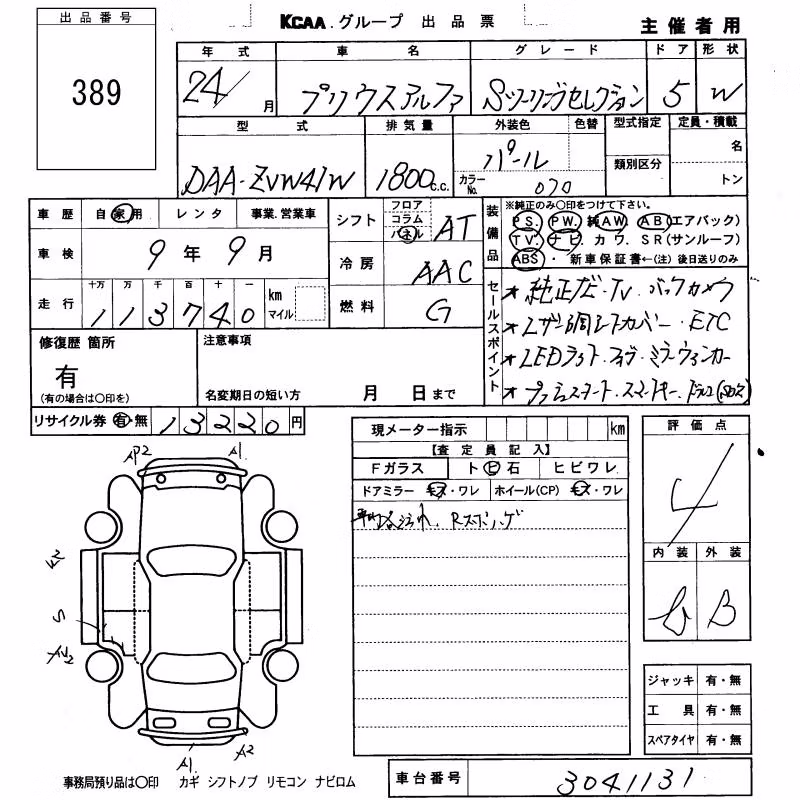 出品番号
389
KCAA.グループ 出品票
主催者用
年式 車名 グレード ドア 形状
24/ 月 プリウスアルファ Sツーリングセレクション 5 W
型式 排気量 外装色 色替 型式指定 定員・積載
DAA-ZVW41W 1800c.c. パール 名
カラーNo. 070 類別区分 トン
車歴 自家用 レンタ 事業.営業車
車検 9年9月
走行 十万 万 千 百 十 一 km マイル
113740
シフト フロア コラム パネル AT
冷房 AAC
燃料 G
装備品 ※純正のみ○印をつけて下さい。
PS. PW. 純AW. AB(エアバック)
TV. ナビ. カワ. SR(サンルーフ)
ABS・ 新車保証書←(注)後日送りのみ
セールスポイント
★純正ナビ・TV.バックカメラ
★レザー調シートカバー・ETC
★LEDライト・フォグ・ミラーウィンカー
★プッシュスタート.スマートキー.
修復歴 箇所
有
(有の場合は○印を)
注意事項
名変期日の短い方 月 日まで
リサイクル券 有・無 13220円
現メーター指示 km
【査定員記入】
Fガラス トビ石 ヒビワレ
ドアミラー キズ・ワレ ホイール(CP) キズ・ワレ
評価点
4
内装 外装
B
A2 A1.
A2
S
A2
A1. A2
ジャッキ 有・無
工具 有・無
スペアタイヤ 有・無
事務局預り品は○印 カギ シフトノブ リモコン ナビロム
車台番号 3041131